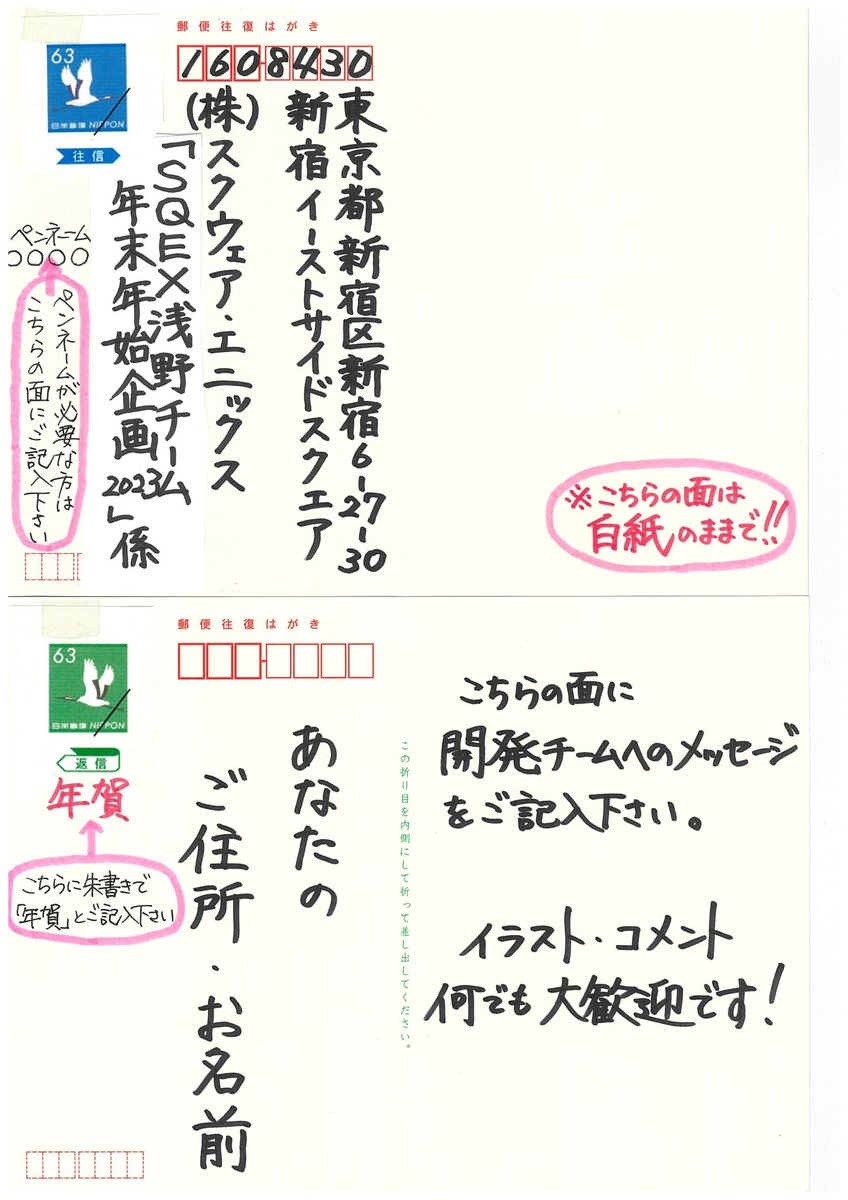 郵便往復はがき
63
日本郵便 NIPPON
往信
160-8430
東京都新宿区新宿6-27-30
新宿イーストサイドスクエア
(株)スクウェア・エニックス
「SQEX浅野チーム
年末年始企画2023」係
ペンネーム
○○○○
ペンネームが必要な方は
こちらの面にご記入下さい
※こちらの面は
白紙のままで!!
郵便往復はがき
63
日本郵便 NIPPON
返信
年賀
こちらに朱書きで
「年賀」とご記入下さい
あなたの
ご住所・お名前
この折り目を内側にして折って差し出してください。
こちらの面に
開発チームへのメッセージ
をご記入下さい。
イラスト・コメント
何でも大歓迎です!